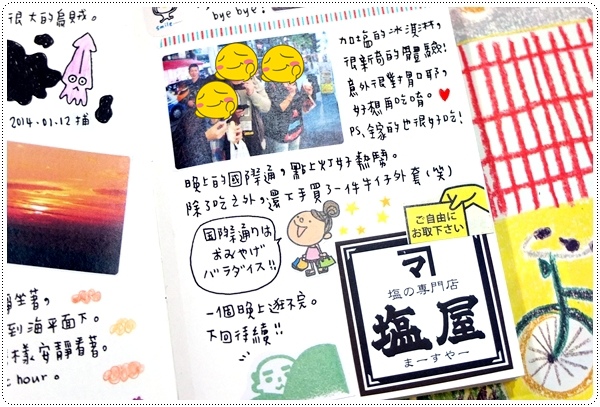 很大的烏賊。
2014.01.12 捕
坐著,
到海平面下。
樣安靜看著。
hour。
bye bye!
smile
加塩的冰淇淋,
很新奇的體驗!
意外很對胃口耶,
好想再吃唷。
PS. 鎵的也很好吃!
晚上的國際通,點上灯好熱鬧。
除了吃之外,還下手買了一件牛仔外套(笑)
国際通りは
おみやげ
パラダイス!!
ご自由に
お取下さい
一個晚上逛不完。
下回待續!!
マ
塩の専門店
塩屋
まーすやー